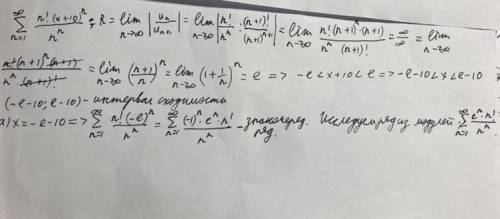 ∑_{n=1}^{∞} n!(x+10)^n / n^n ; R = lim_{n→∞} |u_n / u_{n+1}| = lim_{n→∞} |n!/n^n : (n+1)!/(n+1)^{n+1}| = lim_{n→∞} n!(n+1)^n·(n+1) / n^n (n+1)! = ∞/∞ = lim_{n→∞}
n!(n+1)^n·(n+1) / n^n·(n+1)! = lim_{n→∞} ((n+1)/n)^n = lim_{n→∞} (1+1/n)^n = e => -e<x+10<e => -e-10<x<e-10
(-e-10; e-10) - интервал сходимости
а) x=-e-10 => ∑_{n=1}^{∞} n!(-e)^n / n^n = ∑_{n=1}^{∞} (-1)^n·e^n·n! / n^n - знакочеред. ряд. Исследуем ряд из модулей ∑_{n=1}^{∞} e^n·n! / n^n